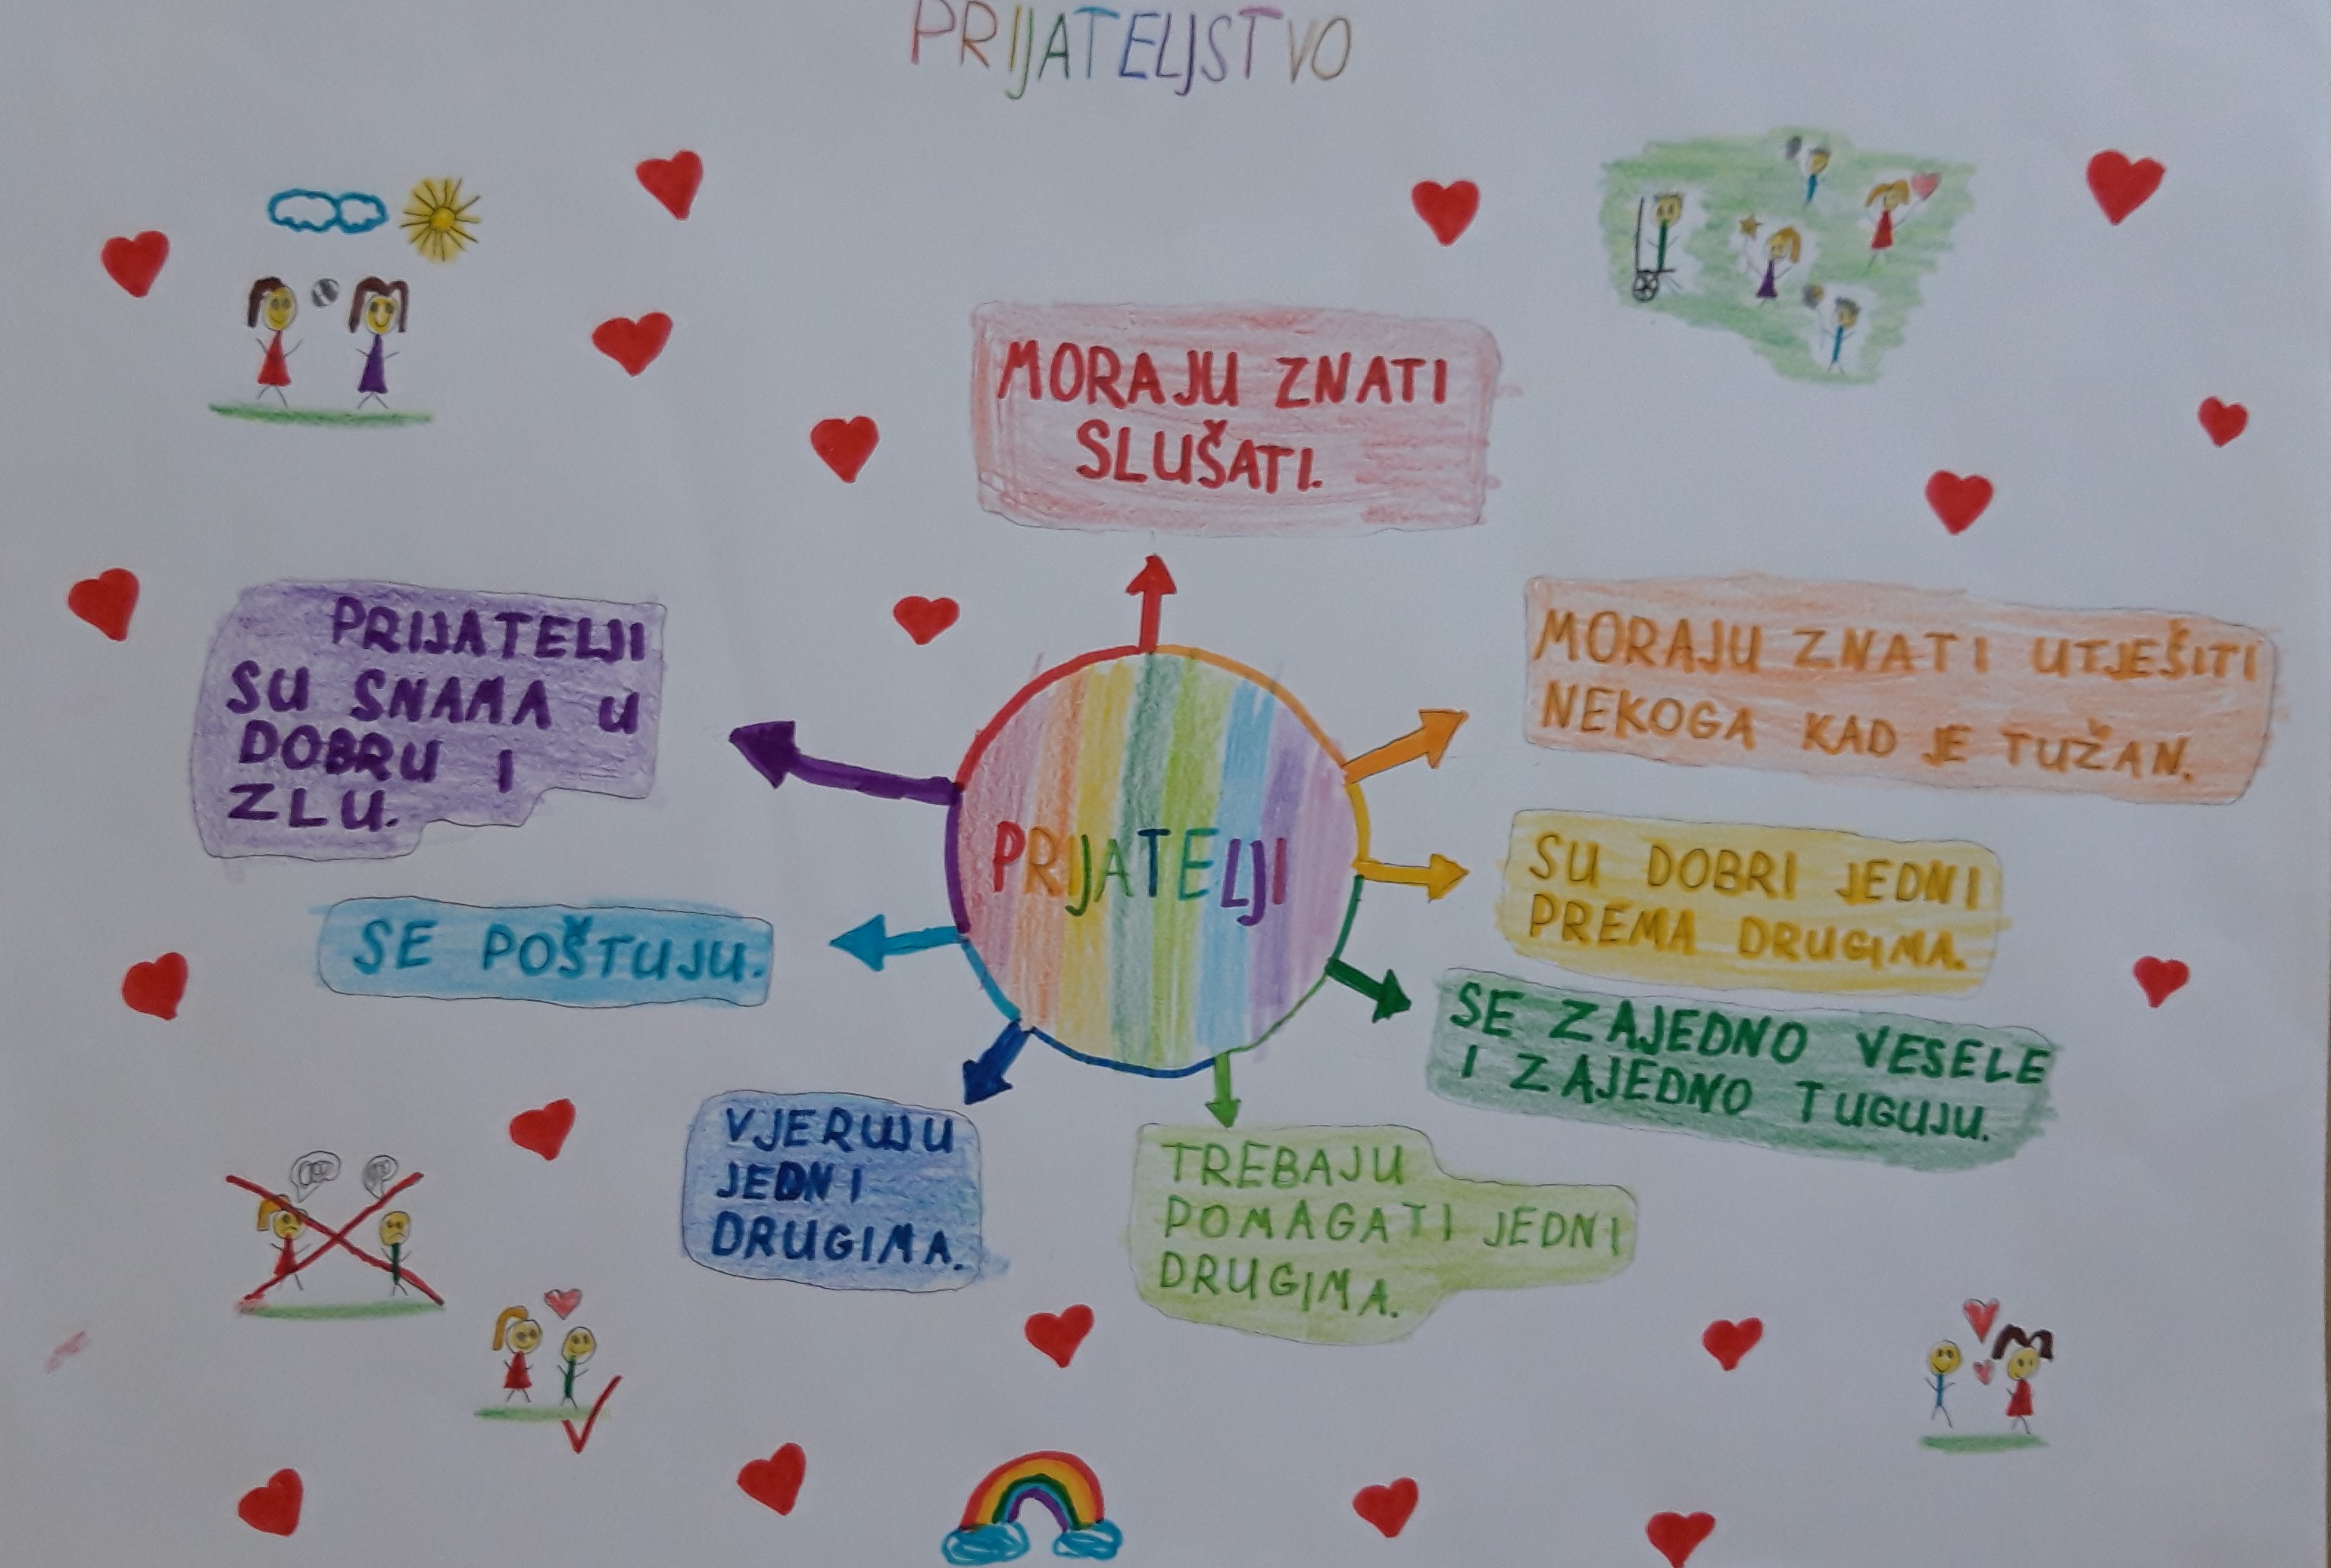 PRIJATELJSTVO
MORAJU ZNATI
SLUŠATI.
MORAJU ZNATI UTJEŠITI
NEKOGA KAD JE TUŽAN.
SU DOBRI JEDNI
PREMA DRUGIMA.
SE ZAJEDNO VESELE
I ZAJEDNO TUGUJU.
TREBAJU
POMAGATI JEDNI
DRUGIMA.
VJERUJU
JEDNI
DRUGIMA.
SE POŠTUJU.
PRIJATELJI
SU SNAMA U
DOBRU I
ZLU.
PRIJATELJI